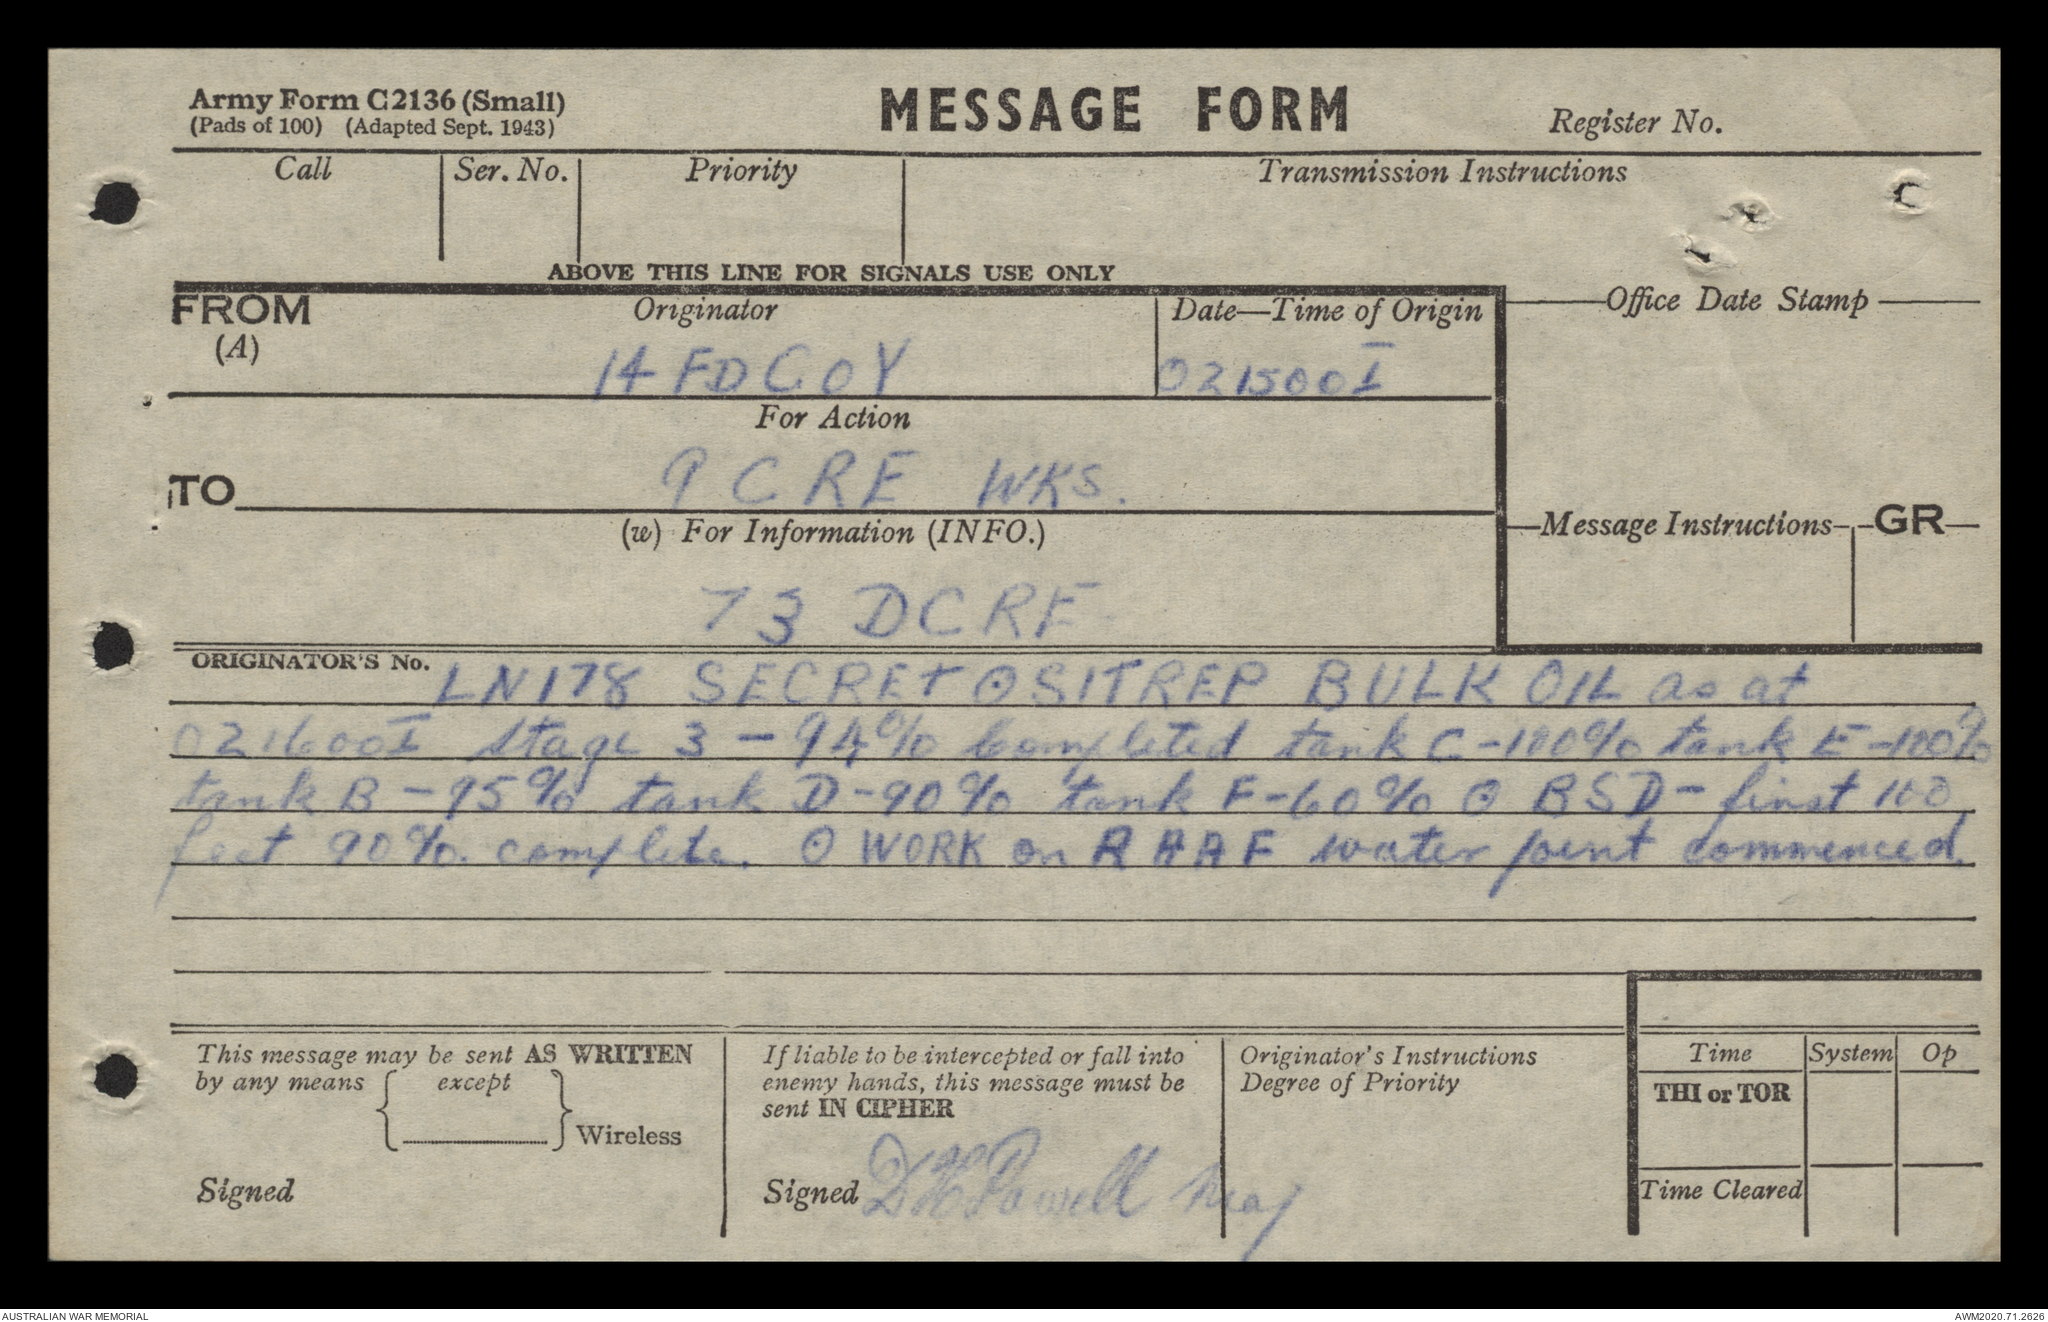 Army Form C2136 (Small)
(Pads of 100) (Adapted Sept. 1943)
MESSAGE FORM
Register No.
Call Ser. No. Priority Transmission Instructions
ABOVE THIS LINE FOR SIGNALS USE ONLY
FROM
(A)
Originator
14 FD COY
Date—Time of Origin
021500 I
Office Date Stamp
For Action
TO 9 CRE WKS.
(w) For Information (INFO.)
73 DCRE
Message Instructions GR
ORIGINATOR'S No. LN178 SECRET ⊙ SITREP BULK OIL as at
021600 I Stage 3 – 94% Completed tank C – 100% tank E – 100%
tank B – 95% tank D – 90% tank F – 60% ⊙ BSD – first 100
feet 90% complete. ⊙ WORK on RAAF water point commenced.
This message may be sent AS WRITTEN
by any means { except }
Wireless
Signed
If liable to be intercepted or fall into
enemy hands, this message must be
sent IN CIPHER
Signed D H Powell Maj
Originator's Instructions
Degree of Priority
Time System Op
THI or TOR
Time Cleared
AUSTRALIAN WAR MEMORIAL
AWM2020.71.2626